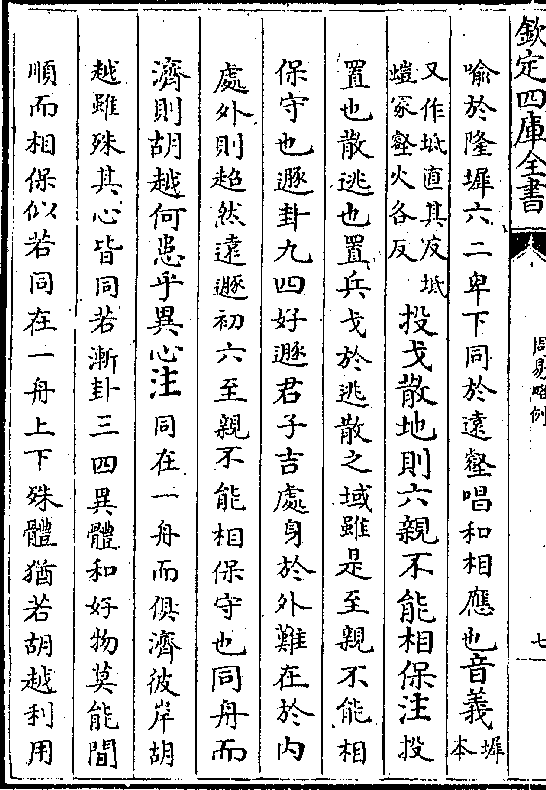 欽定四庫全書
周易略例
七
喻於隆墀六二卑下同於遠壑唱和相應也音義墀本
又作坻直其反坻螘冢壑火各反投戈散地則六親不能相保注投
置也散逃也置兵戈於逃散之域雖是至親不能相
保守也遯卦九四好遯君子吉處身於外難在於内
處外則超然遠遯初六至親不能相保守也同舟而
濟則胡越何患乎異心注同在一舟而俱濟彼岸胡
越雖殊其心皆同若漸卦三四異體和好物莫能間
順而相保似若同在一舟上下殊體猶若胡越利用